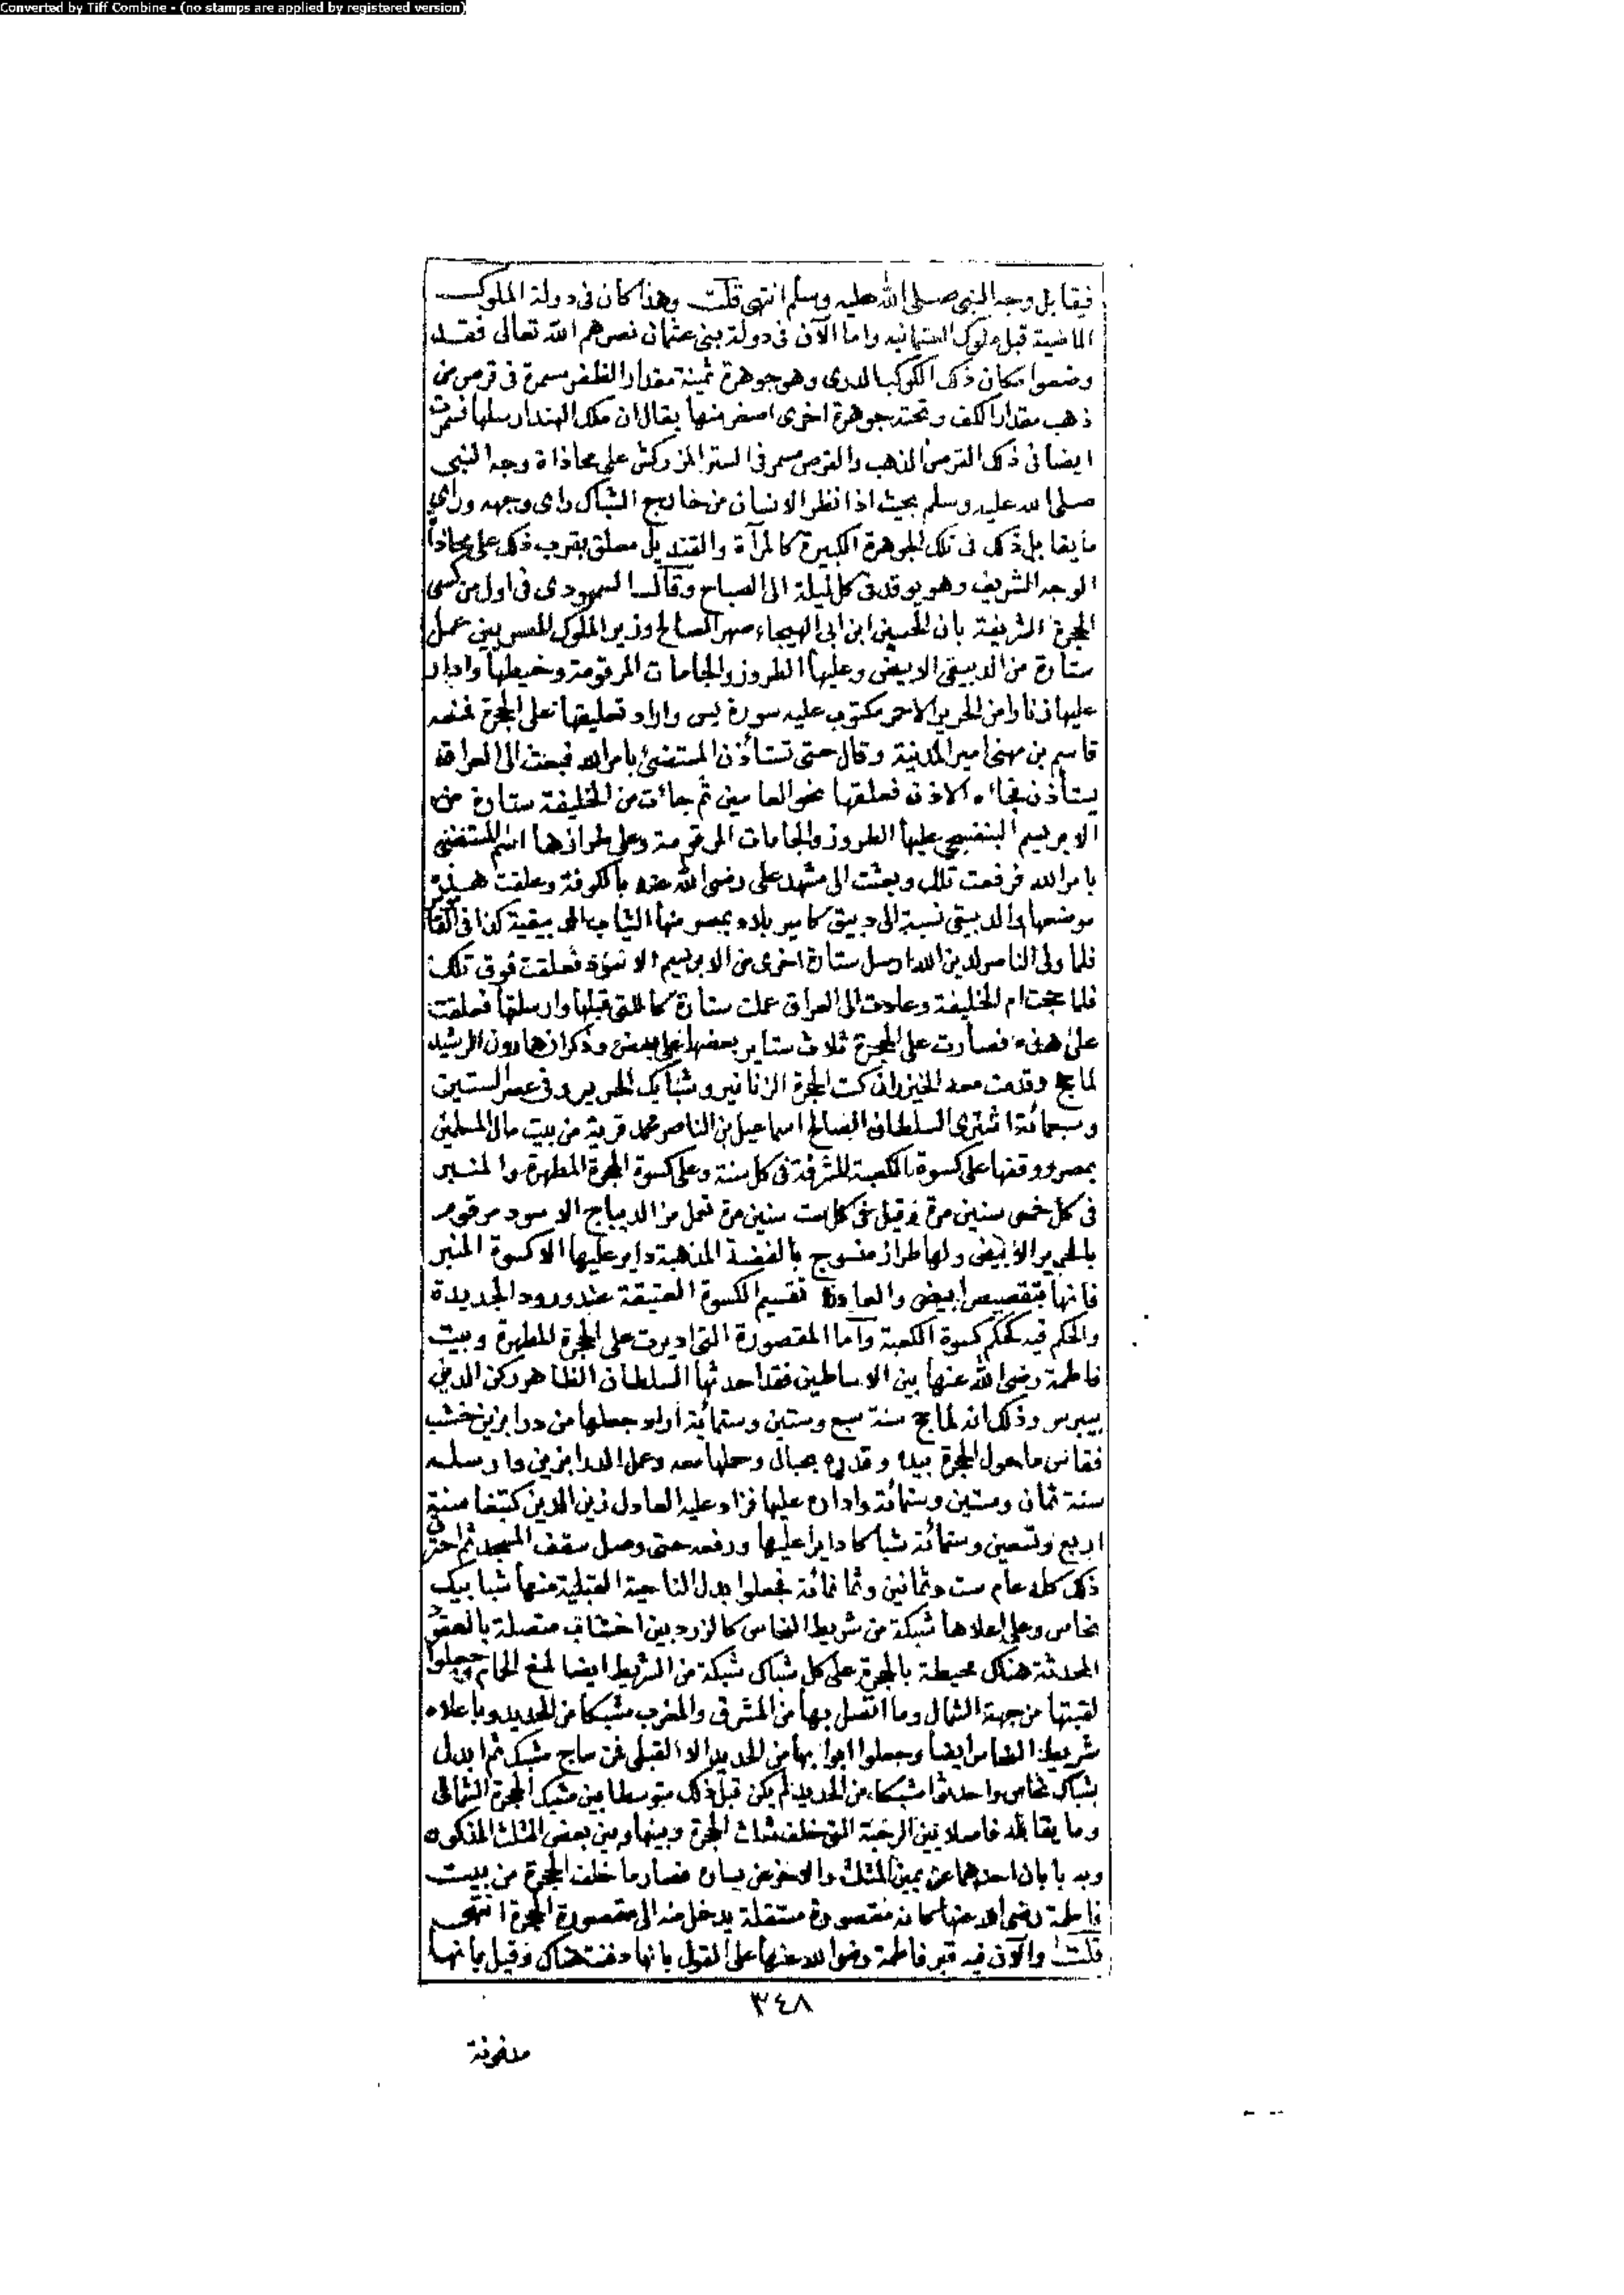 Converted by Tiff Combine - (no stamps are applied by registered version)
فيقابل وجه النبي صلى الله عليه وسلم انتهى قلت وهذا كان في دولة الملوك
الماضية قبل ملوك العثمانيه واما الآن في دولة بني عثمان نصرهم الله تعالى فقد
وضعوا مكان ذلك الكوكب الدرى وهو جوهرة ثمينة مقدار الظفر مسمرة في قرص من
ذهب مقدار الكف وتحته جوهرة اخرى اصغر منها يقال ان ملك الهند ارسلها فسمرت
ايضا في ذلك القرص الذهب والقرص مسمر في الستر المزركش على محاذاة وجه النبي
صلى الله عليه وسلم بحيث اذا نظر الانسان من خارج الشباك راى وجهه وراى
ما يقابل ذلك في تلك الجوهرة الكبيرة كالمرآة والقنديل معلق بقرب ذلك على محاذاة
الوجه الشريف وهو يوقد في كل ليلة الى الصباح وقال السمهودى في اول من كسى
الحجرة الشريفة بان الحسين ابن ابى الهيجاء صهر الصالح وزير الملوك المصريين عمل
ستارة من الدبيقى الابيض وعليها الطروز والجامات المرقومة وخيطها وادار
عليها زنارا من الحرير الاحمر مكتوب عليه سورة يس واراد تعليقها على الحجرة فمنعه
قاسم بن مهنى امير المدينة وقال حتى تستأذن المستضئ بامر الله فبعث الى العراق
يستأذن فجاءه الاذن فعلقها نحو العامين ثم جاءت من الخليفة ستارة من
الابريسم البنفسجى عليها الطروز والجامات المرقومة وعلى طرازها اسم المستضئ
بامر الله فرفعت تلك وبعثت الى مشهد على رضى الله عنه بالكوفة وعلقت هذه
موضعها والدبيقى نسبة الى دبيق كامير بلده بمصر منها الثياب الدبيقية كذا في القاموس
فلما ولى الناصر لدين الله ارسل ستارة اخرى من الابريسم الاسود فعلقت فوق تلك
فلما حجت ام الخليفة وعادت الى العراق عملت ستارة كالتي قبلها وارسلتها فعلقت
على هذه فصارت على الحجرة ثلاث ستاير بعضها على بعض وذكر ان هارون الرشيد
لما حج وقدمت معه الخيزران كست الحجرة الزنانير وشبابيك الحرير وفي عصر الستين
وسبعمائة اشترى السلطان الصالح اسماعيل بن الناصر محمد قرية من بيت مال المسلمين
بمصر ووقفها على كسوة الكعبة المشرفة في كل سنة وعلى كسوة الحجرة المطهرة والمنبر
في كل خمس سنين مرة وقيل في كل ست سنين مرة تعمل من الديباج الاسود مرقوم
بالحرير الابيض ولها طراز منسوج بالفضة المذهبة داير عليها الا كسوة المنبر
فانها بتقصيص ابيض والعادة تقسيم الكسوة العتيقة عند ورود الجديدة
والحكم فيه كحكم كسوة الكعبة واما المقصورة التي اديرت على الحجرة المطهرة وبيت
فاطمة رضى الله عنها بين الاساطين فقد احدثها السلطان الظاهر ركن الدين
بيبرس وذلك انه لما حج سنة سبع وستين وستمائة اراد جعلها من درابزين خشب
فقاس ما حول الحجرة بيده وقدره بحبال وحملها معه وعمل الدرابزين وارسله
سنة ثمان وستين وستمائة واداره عليها فزاد عليه العادل زين الدين كتبغا سنة
اربع وتسعين وستمائة شباكا دايرا عليها ورفعه حتى وصل سقف المسجد ثم احترق
ذلك كله عام ست وثمانين وثمانمائة فجعلوا بدل الناحية القبلية منها شبابيك
نحاس وعلى اعلاها شبكة من شريط النحاس كالزرد بين اخشاب متصلة بالعقود
المحدثة هناك محيطة بالحجرة على كل شباك شبكة من الشريط ايضا لمنع الحمام وجعلوا
لقبتها من جهة الشمال وما اتصل بها من المشرق والمغرب مشبكا من الحديد وباعلاه
شريط النحاس ايضا وجعلوا ابوابها من الحديد الا القبلى فمن ساج مشبك ثم ابدل
بشباك نحاس واحدثوا مشبكا من الحديد لم يكن قبل ذلك متوسطا بين مشبك الحجرة الشمالى
وما يقابله فاصلا بين الرحبة التي خلف مثلث الحجرة وبينها وبين بعض المثلث المذكور
وبه بابان احدهما عن يمين المثلث والاخر عن يساره فصار ما خلف الحجرة من بيت
فاطمة رضى الله عنها كانه مقصورة مستقلة يدخل منه الى مقصورة الحجرة انتهى
قلت والآن فيه قبر فاطمة رضى الله عنها على القول بانها دفنت هناك وقيل بانها
٣٤٨
مدفونة